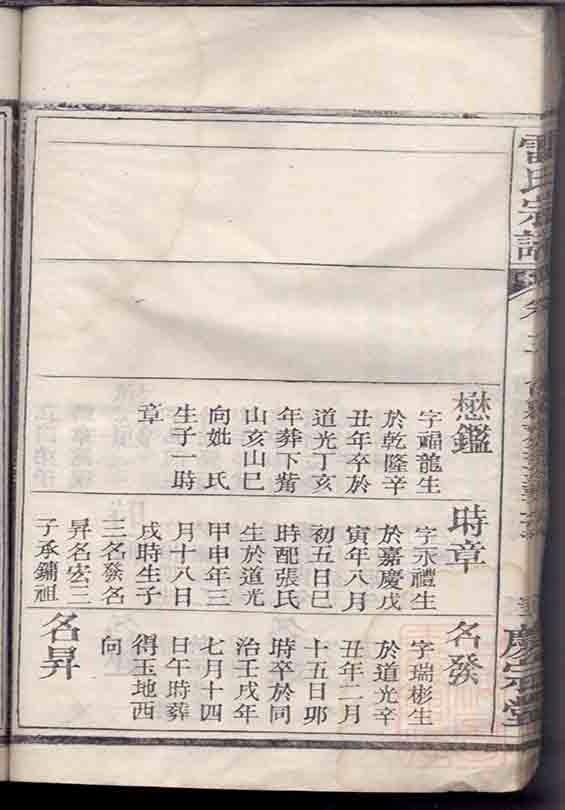 雷氏宗譜
卷三
慶宗堂
懋鑑
字福龍生
於乾隆辛
丑年卒於
道光丁亥
年葬下觜
山亥山巳
向妣 氏
生子一時
章
時章
字永禮生
於嘉慶戊
寅年八月
初五日巳
時配張氏
生於道光
甲申年三
月十八日
戌時生子
三名發名
昇名宏三
子承鏞祖
名發
字瑞彬生
於道光辛
丑年二月
十五日耶
時卒於同
治壬戌年
七月十四
日午時葬
得玉地西
向
名昇